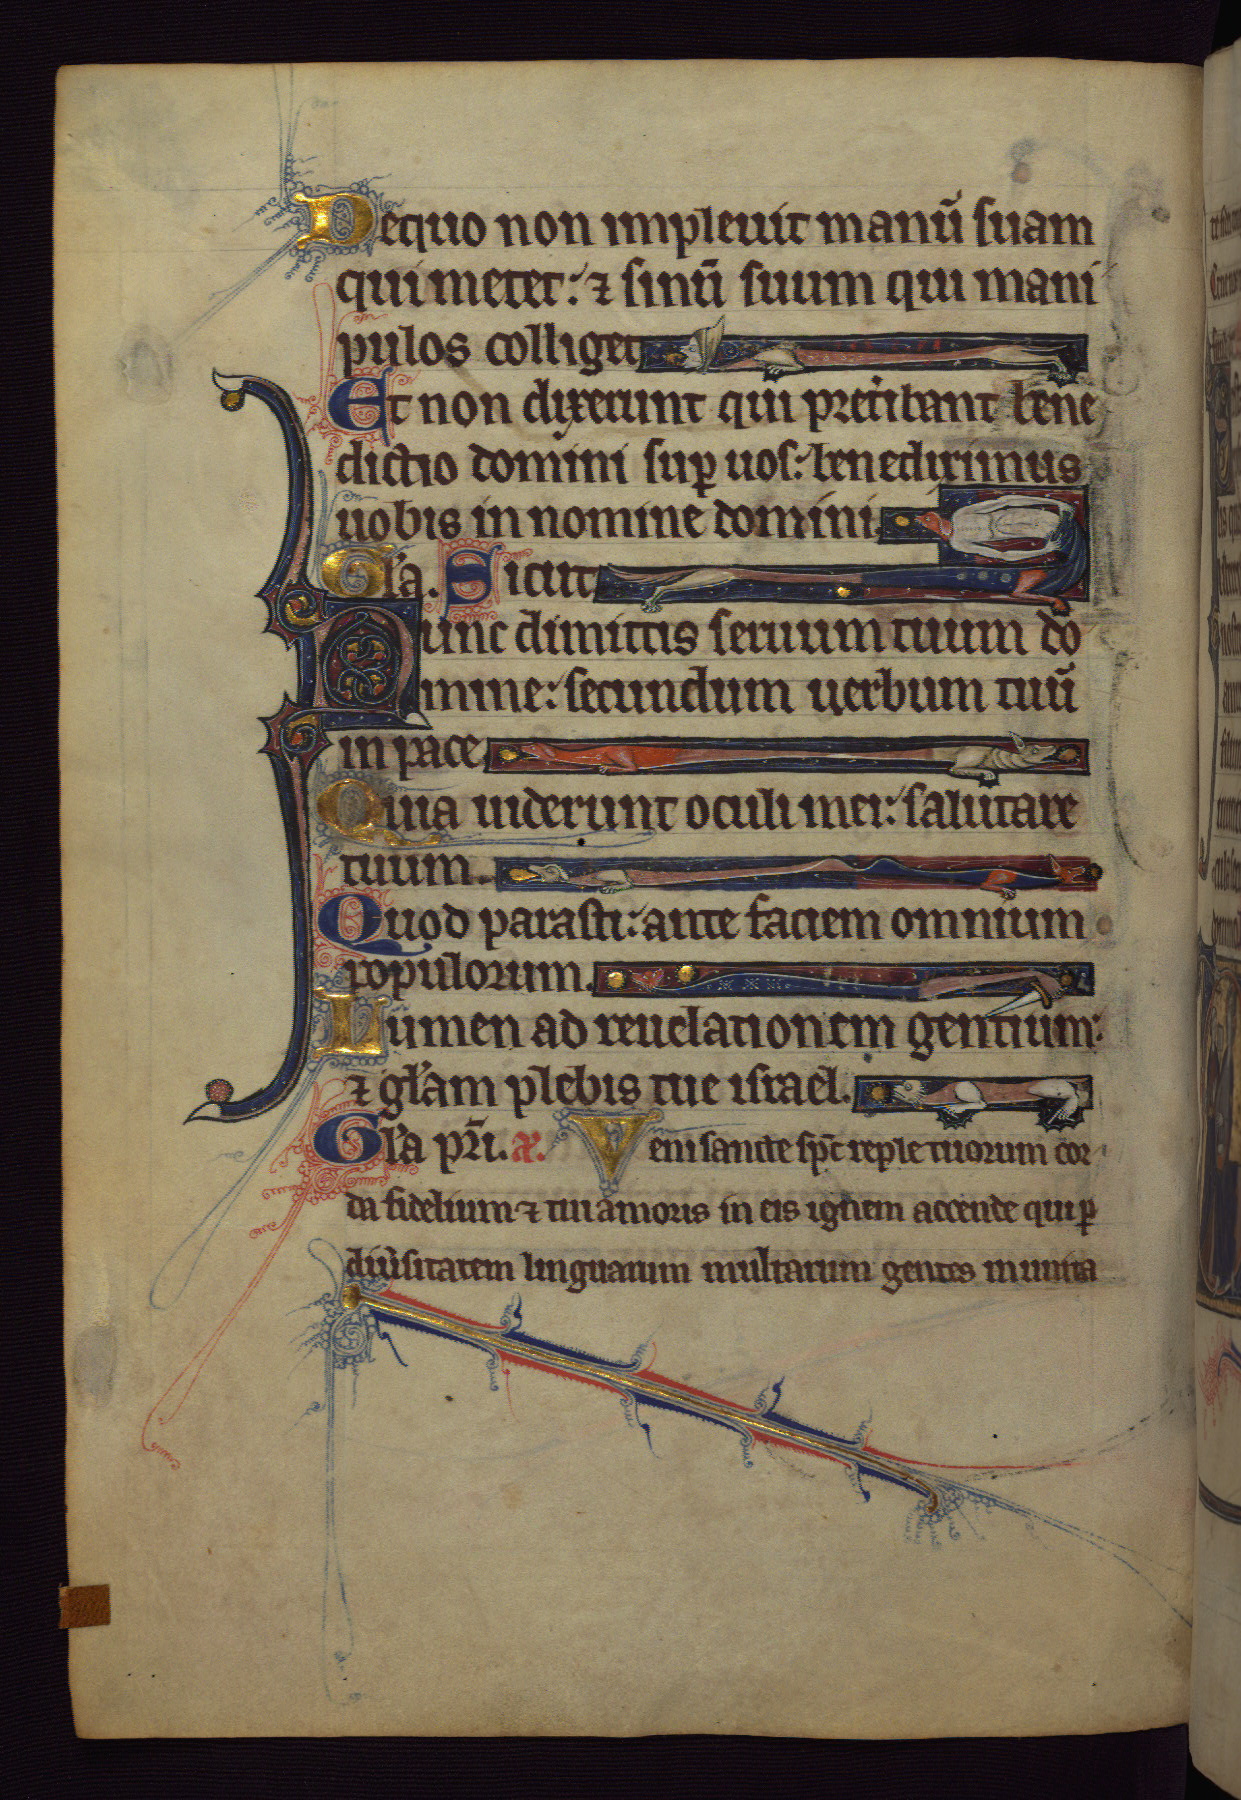 De quo non impleuit manū suam
qui metet: ⁊ sinū suum qui mani
pulos colliget
Et non dixerunt qui preteribant bene
dictio domini sup uos: benediximus
uobis in nomine domini.
Gl'a. Sicut
Nunc dimittis seruum tuum do
mine: secundum uerbum tuū
in pace
Quia uiderunt oculi mei: salutare
tuum.
Quod parasti: ante faciem omnium
populorum.
Lumen ad reuelationem gentium:
⁊ gl'am plebis tue israel.
Gl'a pr̄i. a. Veni sancte sp̄c reple tuorum cor
da fidelium ⁊ tui amoris in eis ignem accende qui p
diu'sitatem linguarum multarum gentes in unita